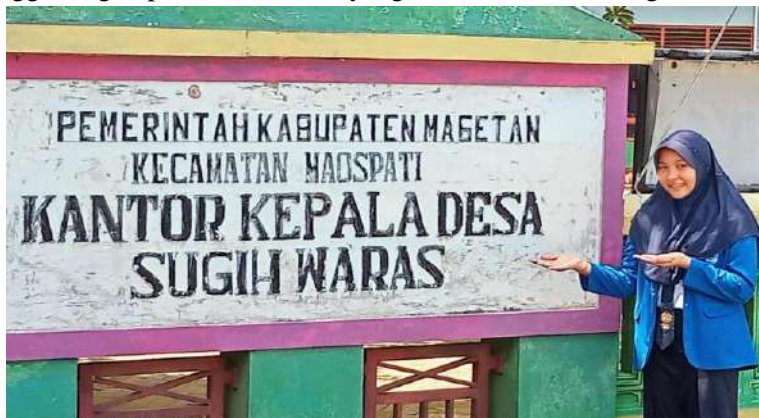 PEMERINTAH KABUPATEN MAGETAN
KECAMATAN MAOSPATI
KANTOR KEPALA DESA
SUGIH WARAS